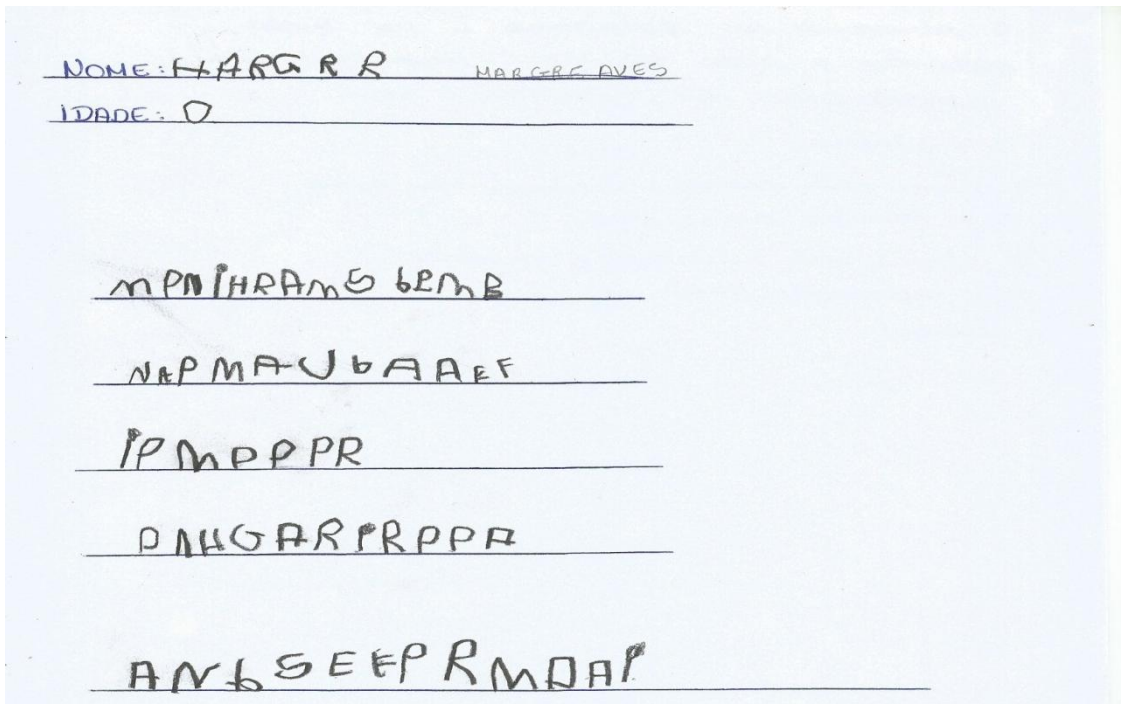 NOME: HARGRR MARGREAVES
IDADE: O
MPNIHRAMS bRMB
NAPMAUbAAEF
IPMPPPR
DNHGARPRPPA
ANbSEEPRMDAP